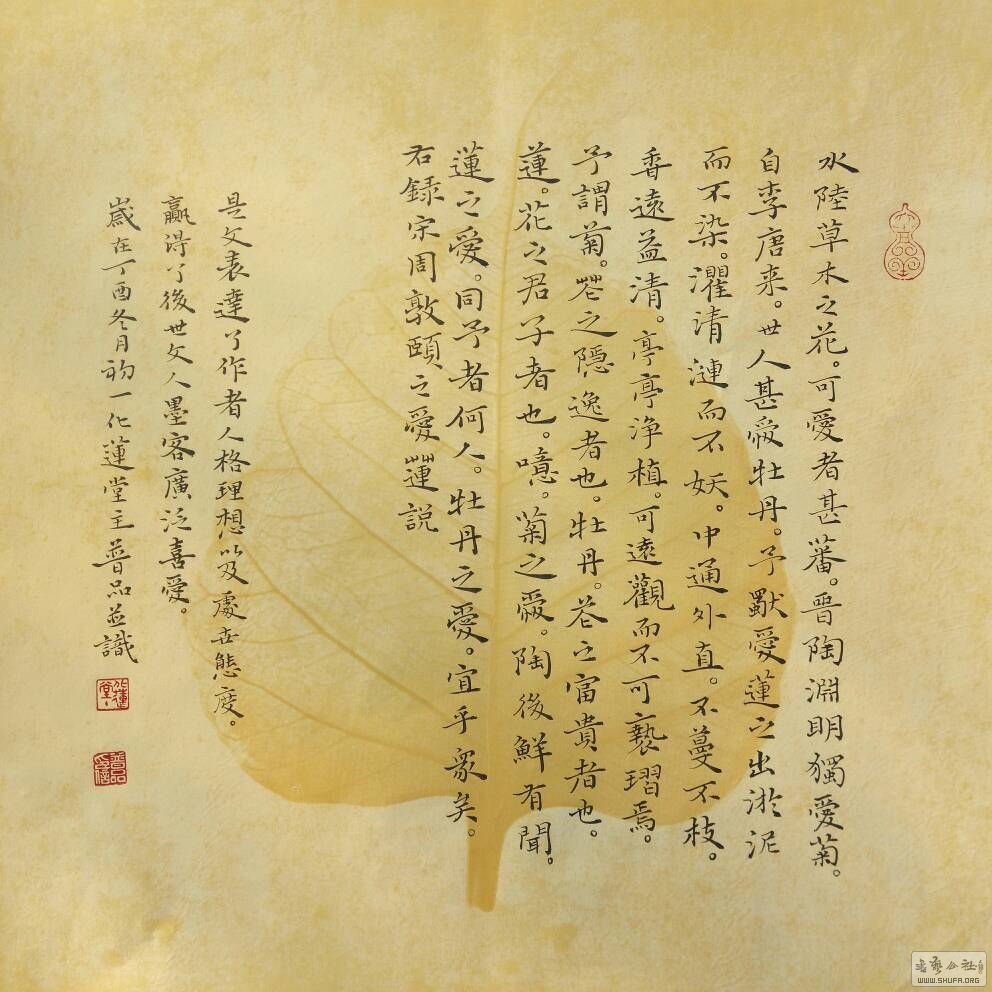 水陸草木之花。可愛者甚蕃。晉陶淵明獨愛菊。
自李唐来。世人甚愛牡丹。予獸愛蓮之出淤泥
而不染。濯清漣而不妖。中通外直。不蔓不枝。
香遠益清。亭亭浄植。可遠觀而不可褻翫焉。
予謂菊。花之隱逸者也。牡丹。花之富貴者也。
蓮。花之君子者也。噫。菊之愛。陶後鮮有聞。
蓮之愛。同予者何人。牡丹之愛。宜乎衆矣。
右録宋周敦頤之愛蓮説
是文表達了作者人格理想以及處世態度。
贏得了後世文人墨客廣泛喜愛。
歲在丁酉冬月初一化蓮堂主普品並識
化蓮堂
普品
WWW.SHUFA.ORG